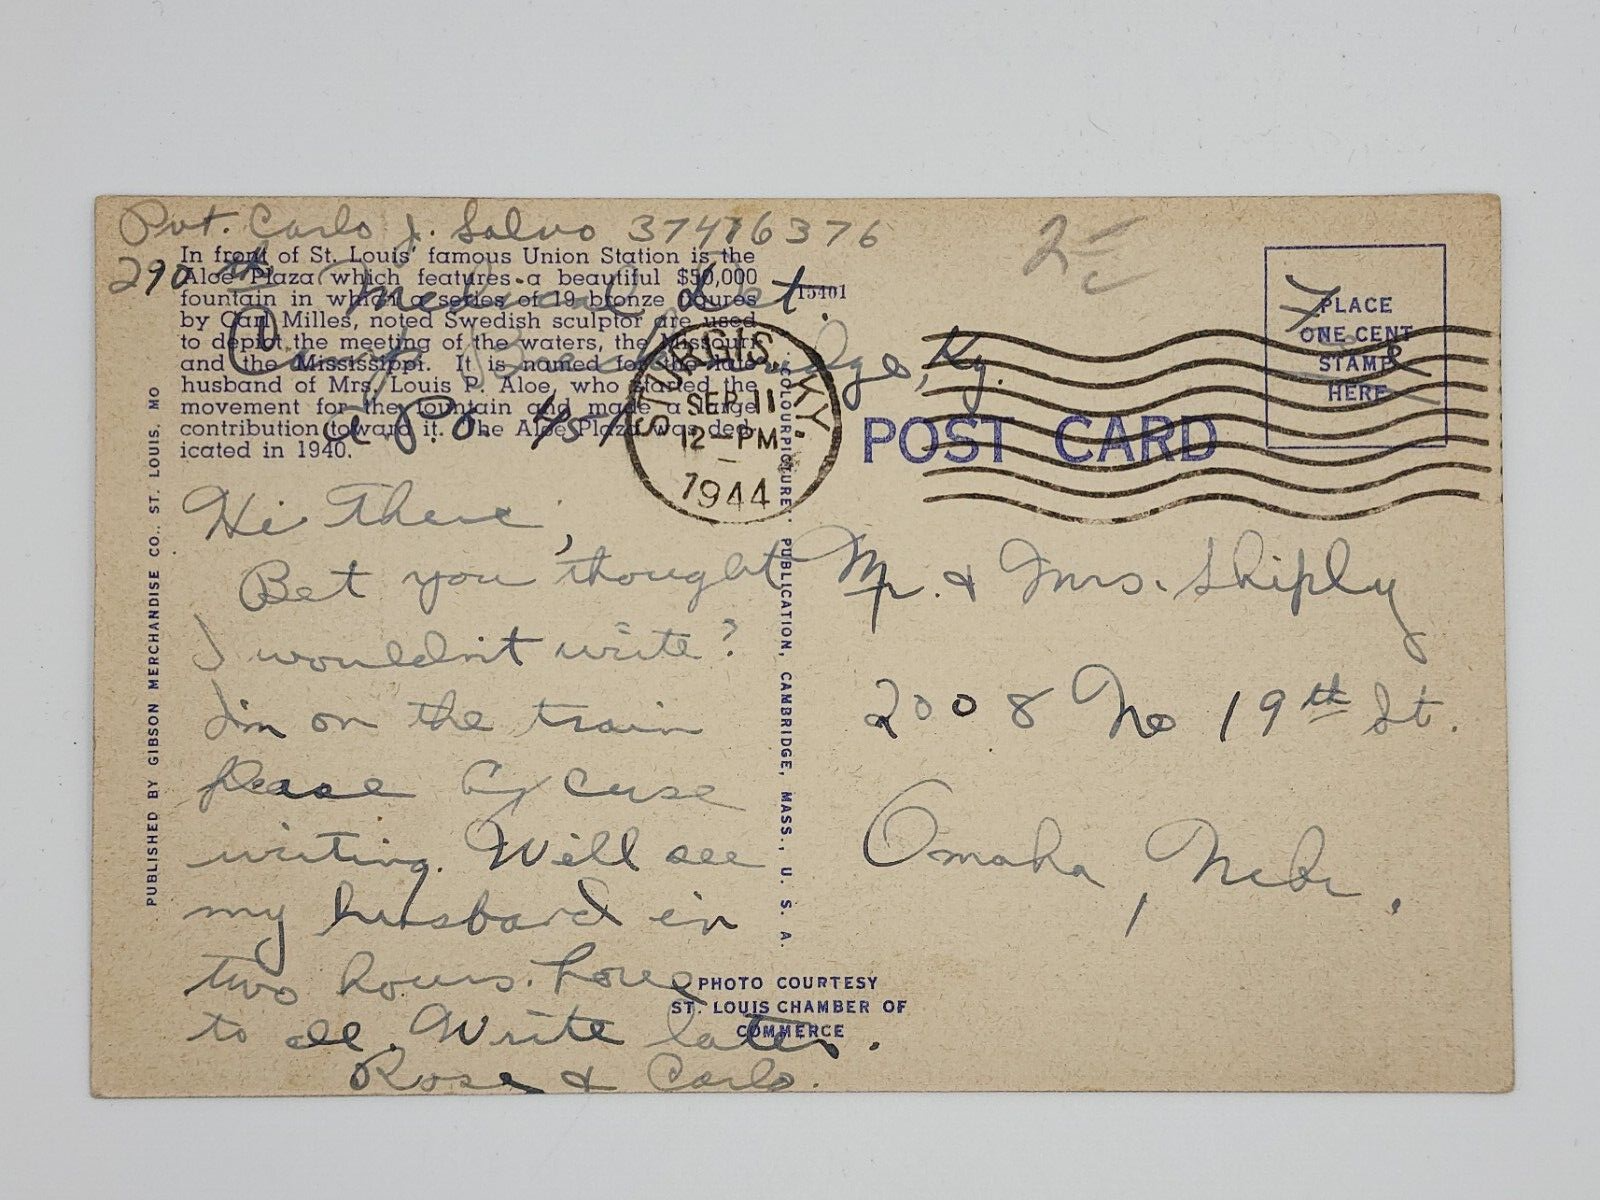 Pvt. Carlo J. Salvo 37476376
290th Medical Det.
Camp Breckenridge, Ky.
A.P.O. 451
In front of St. Louis' famous Union Station is the
Aloe Plaza which features a beautiful $50,000
fountain in which a series of 19 bronze figures
by Carl Milles, noted Swedish sculptor are used
to depict the meeting of the waters, the Missouri
and the Mississippi. It is named for the late
husband of Mrs. Louis P. Aloe, who started the
movement for the fountain and made a large
contribution toward it. The Aloe Plaza was ded-
icated in 1940.
15401
STURGIS, KY.
SEP 11
12-PM
1944
PLACE
ONE CENT
STAMP
HERE
POST CARD
Hi There,
Bet you thought
I wouldn't write?
I'm on the train
please Excuse
writing. Will see
my husband in
two hours. Love
to all. Write later.
Rose & Carlo.
Mr. & Mrs. Shiply
2008 No 19th St.
Omaha, Nebr.
PUBLISHED BY GIBSON MERCHANDISE CO., ST. LOUIS, MO
"COLOURPICTURE" PUBLICATION, CAMBRIDGE, MASS., U. S. A.
PHOTO COURTESY
ST. LOUIS CHAMBER OF
COMMERCE